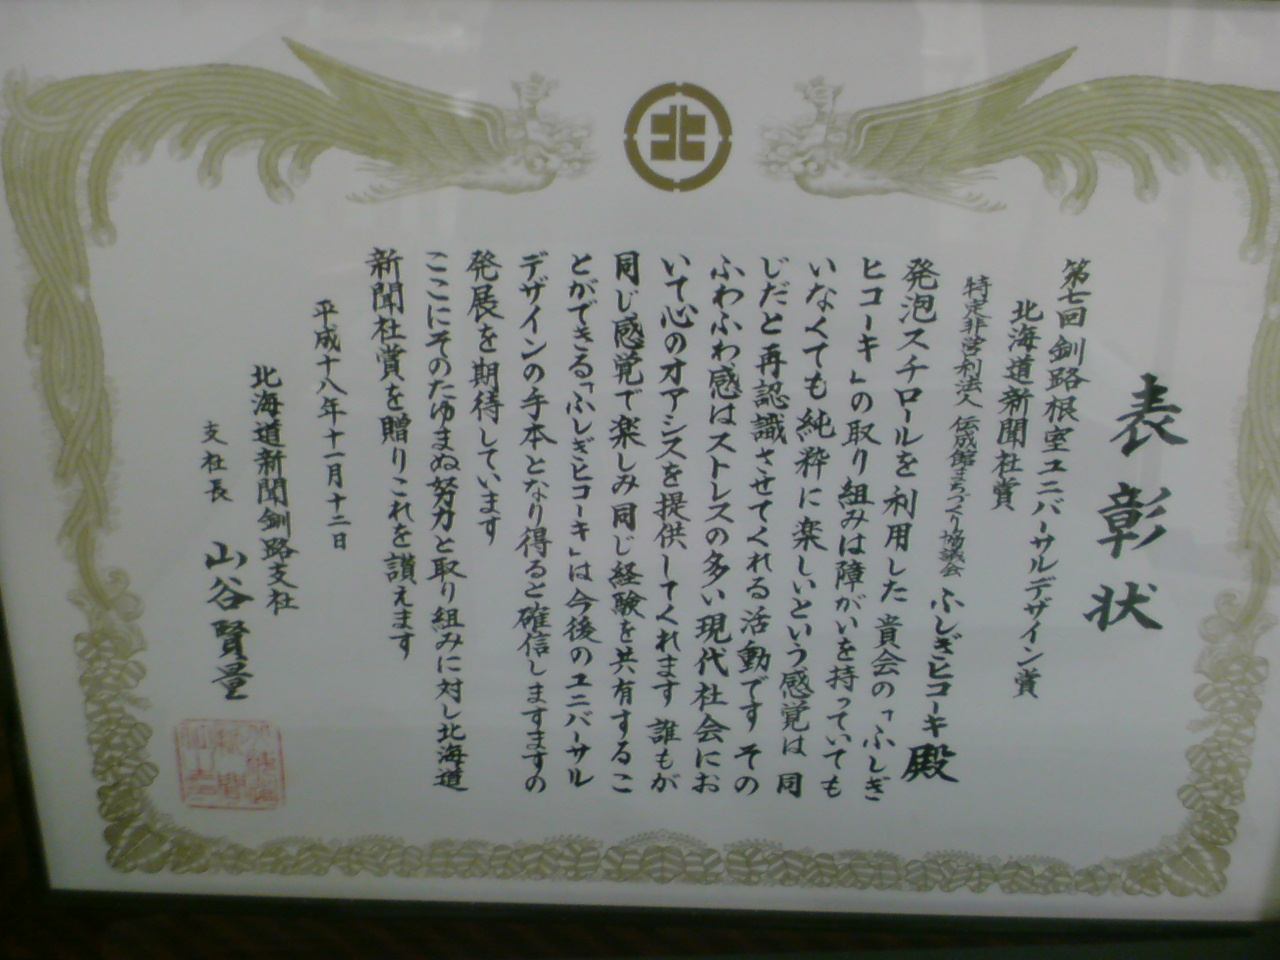 北
表彰状
第七回釧路根室ユニバーサルデザイン賞
北海道新聞社賞
特定非営利法人 伝成館まちづくり協議会 ふしぎヒコーキ殿
発泡スチロールを利用した貴会の「ふしぎ
ヒコーキ」の取り組みは障がいを持っていても
いなくても純粋に楽しいという感覚は同
じだと再認識させてくれる活動です その
ふわふわ感はストレスの多い現代社会にお
いて心のオアシスを提供してくれます 誰もが
同じ感覚で楽しみ同じ経験を共有するこ
とができる「ふしぎヒコーキ」は今後のユニバーサル
デザインの手本となり得ると確信しますますの
発展を期待しています
ここにそのたゆまぬ努力と取り組みに対し北海道
新聞社賞を贈りこれを讃えます
平成十八年十一月十二日
北海道新聞釧路支社
支社長 山谷賢量